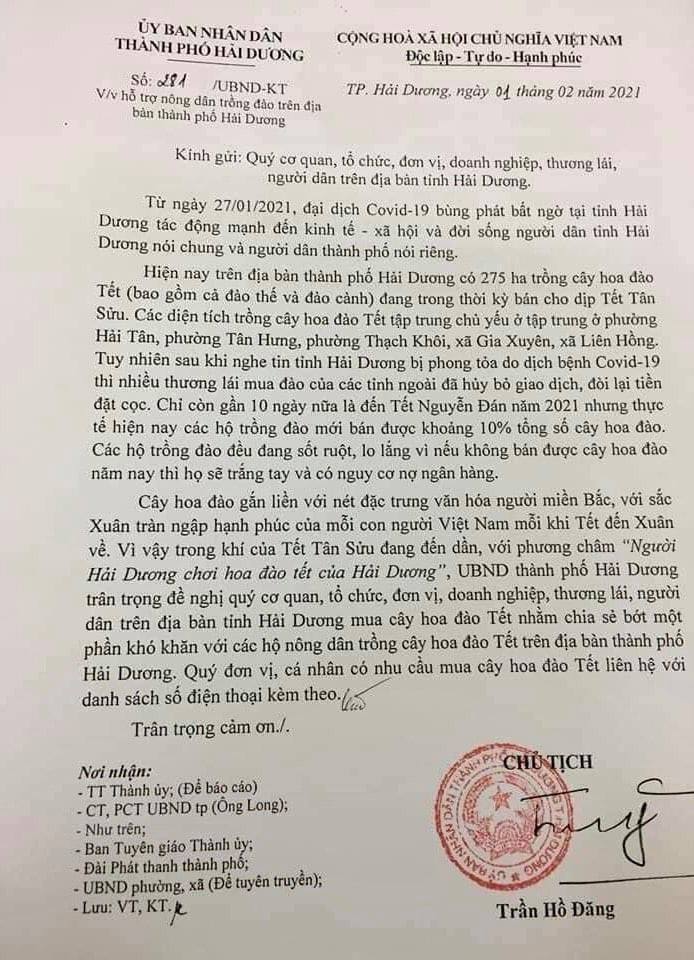 ỦY BAN NHÂN DÂN
THÀNH PHỐ HẢI DƯƠNG
CỘNG HOÀ XÃ HỘI CHỦ NGHĨA VIỆT NAM
Độc lập - Tự do - Hạnh phúc
Số: 281 /UBND-KT
V/v hỗ trợ nông dân trồng đào trên địa
bàn thành phố Hải Dương
TP. Hải Dương, ngày 01 tháng 02 năm 2021
Kính gửi: Quý cơ quan, tổ chức, đơn vị, doanh nghiệp, thương lái,
người dân trên địa bàn tỉnh Hải Dương.
Từ ngày 27/01/2021, đại dịch Covid-19 bùng phát bất ngờ tại tỉnh Hải
Dương tác động mạnh đến kinh tế - xã hội và đời sống người dân tỉnh Hải
Dương nói chung và người dân thành phố nói riêng.
Hiện nay trên địa bàn thành phố Hải Dương có 275 ha trồng cây hoa đào
Tết (bao gồm cả đào thế và đào cảnh) đang trong thời kỳ bán cho dịp Tết Tân
Sửu. Các diện tích trồng cây hoa đào Tết tập trung chủ yếu ở tập trung ở phường
Hải Tân, phường Tân Hưng, phường Thạch Khôi, xã Gia Xuyên, xã Liên Hồng.
Tuy nhiên sau khi nghe tin tỉnh Hải Dương bị phong tỏa do dịch bệnh Covid-19
thì nhiều thương lái mua đào của các tỉnh ngoài đã hủy bỏ giao dịch, đòi lại tiền
đặt cọc. Chỉ còn gần 10 ngày nữa là đến Tết Nguyễn Đán năm 2021 nhưng thực
tế hiện nay các hộ trồng đào mới bán được khoảng 10% tổng số cây hoa đào.
Các hộ trồng đào đều đang sốt ruột, lo lắng vì nếu không bán được cây hoa đào
năm nay thì họ sẽ trắng tay và có nguy cơ nợ ngân hàng.
Cây hoa đào gắn liền với nét đặc trưng văn hóa người miền Bắc, với sắc
Xuân tràn ngập hạnh phúc của mỗi con người Việt Nam mỗi khi Tết đến Xuân
về. Vì vậy trong khí của Tết Tân Sửu đang đến dần, với phương châm "Người
Hải Dương chơi hoa đào tết của Hải Dương", UBND thành phố Hải Dương
trân trọng đề nghị quý cơ quan, tổ chức, đơn vị, doanh nghiệp, thương lái, người
dân trên địa bàn tỉnh Hải Dương mua cây hoa đào Tết nhằm chia sẻ bớt một
phần khó khăn với các hộ nông dân trồng cây hoa đào Tết trên địa bàn thành phố
Hải Dương. Quý đơn vị, cá nhân có nhu cầu mua cây hoa đào Tết liên hệ với
danh sách số điện thoại kèm theo.
Trân trọng cảm ơn./.
Nơi nhận:
- TT Thành ủy; (Để báo cáo)
- CT, PCT UBND tp (Ông Long);
- Như trên;
- Ban Tuyên giáo Thành ủy;
- Đài Phát thanh thành phố;
- UBND phường, xã (Để tuyên truyền);
- Lưu: VT, KT.
CHỦ TỊCH
Trần Hồ Đăng